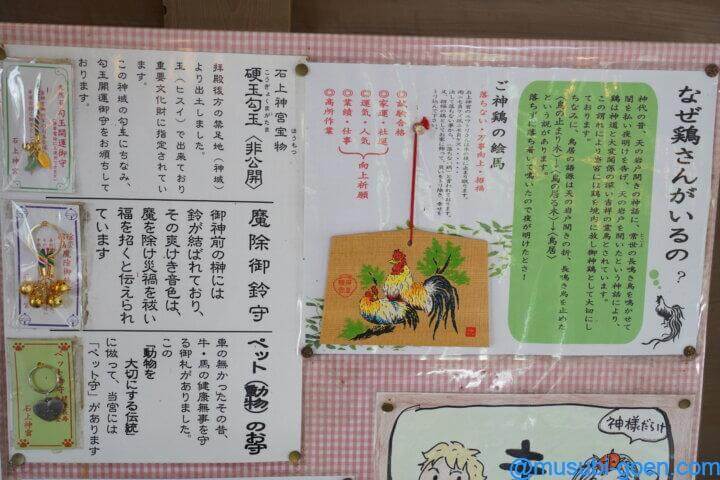 なぜ鶏さんがいるの？
神代の昔、天の岩戸開きの神話に、常世の長鳴き鳥を鳴かせて
闇を払い夜明けを告げ、天の岩戸を開いたという神話により、
鶏は神道と大変関係の深い吉祥の霊鳥とされています。
この謂れにより当宮には鶏を境内に放し御神鶏として大切にし
ております。
ちなみに、鳥居の語源は天の岩戸開きの折、長鳴き鳥を止めた
〈鳥の止まり木〉→〈鳥の居る木〉→〈鳥居〉
という説があります。
落ちずに落ち着いて鳴いたので夜が明けたとさ！
ご神鶏の絵馬
落ちない・万事向上・招福
◎試験合格
◎家運・社運
◎運気・人気
◎業績・仕事
◎高所作業
向上祈願
石上神宮宝物
ほうもつ
こうぎょくまがたま
硬玉勾玉〈非公開〉
拝殿後方の禁足地（神域）
より出土しました。
玉（ヒスイ）で出来ており
重要文化財に指定されてい
ます。
この神域の勾玉にちなみ、
勾玉開運御守をお頒ちして
おります。
魔除御鈴守
御神前の榊には
鈴が結ばれており、
その爽けき音色は、
魔を除け災禍を祓い
福を招くと伝えられ
ています
ペット（動物）のお守
車の無かったその昔、
牛・馬の健康無事を守
る御札がありました。
この
「動物を
大切にする伝統」
に倣って、当宮には
「ペット守」があります
勾玉開運御守
石上神宮
魔除御
ペット
石上神宮
神様だらけ
@musubi-goen.com